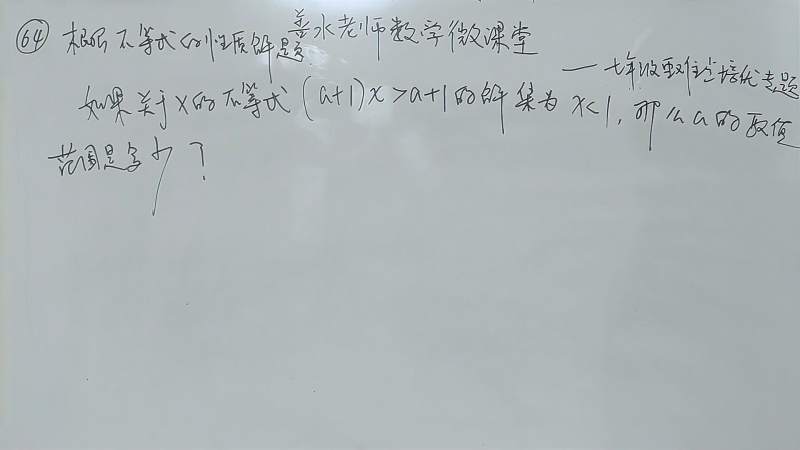 64 根据不等式的性质解题
善水老师数学微课堂
——七年级重难点培优专题
如果关于x的不等式(a+1)x>a+1的解集为x<1,那么a的取值
范围是多少?